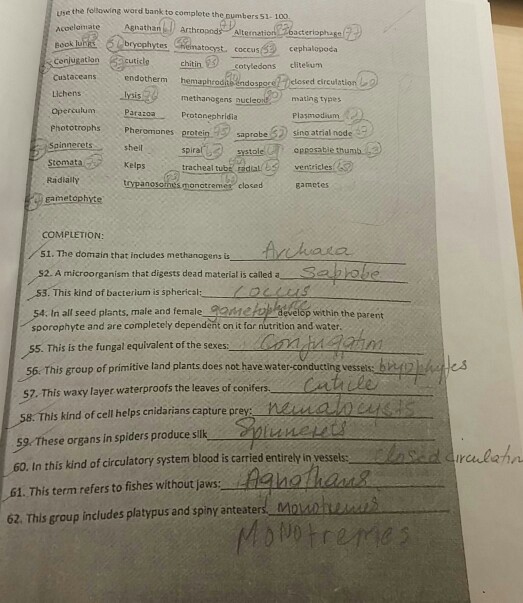 Use the following word bank to complete the numbers 51- 100.
Acoelomate Agnathan Arthropods Alternation bacteriophage
Book lungs bryophytes nematocyst coccus cephalopoda
Conjugation cuticle chitin cotyledons clitellum
Custaceans endotherm hemaphrodite endospore closed circulation
Lichens lysis methanogens nucleoid mating types
Operculum Parazoa Protonephridia Plasmodium
Phototrophs Pheromones protein saprobe sino atrial node
Spinnerets shell spiral systole opposable thumb
Stomata Kelps tracheal tube radial ventricles
Radially trypanosomes monotremes closed gametes
gametophyte
COMPLETION:
51. The domain that includes methanogens is Archaea
52. A microorganism that digests dead material is called a saprobe
53. This kind of bacterium is spherical: coccus
54. In all seed plants, male and female gametophyte develop within the parent
sporophyte and are completely dependent on it for nutrition and water.
55. This is the fungal equivalent of the sexes: Conjugation
56. This group of primitive land plants does not have water-conducting vessels: bryophytes
57. This waxy layer waterproofs the leaves of conifers. Cuticle
58. This kind of cell helps cnidarians capture prey: nematocysts
59. These organs in spiders produce silk Spinnerets
60. In this kind of circulatory system blood is carried entirely in vessels: closed circulation
61. This term refers to fishes without jaws: Agnathans
62. This group includes platypus and spiny anteaters. Monotremes
Monotremes